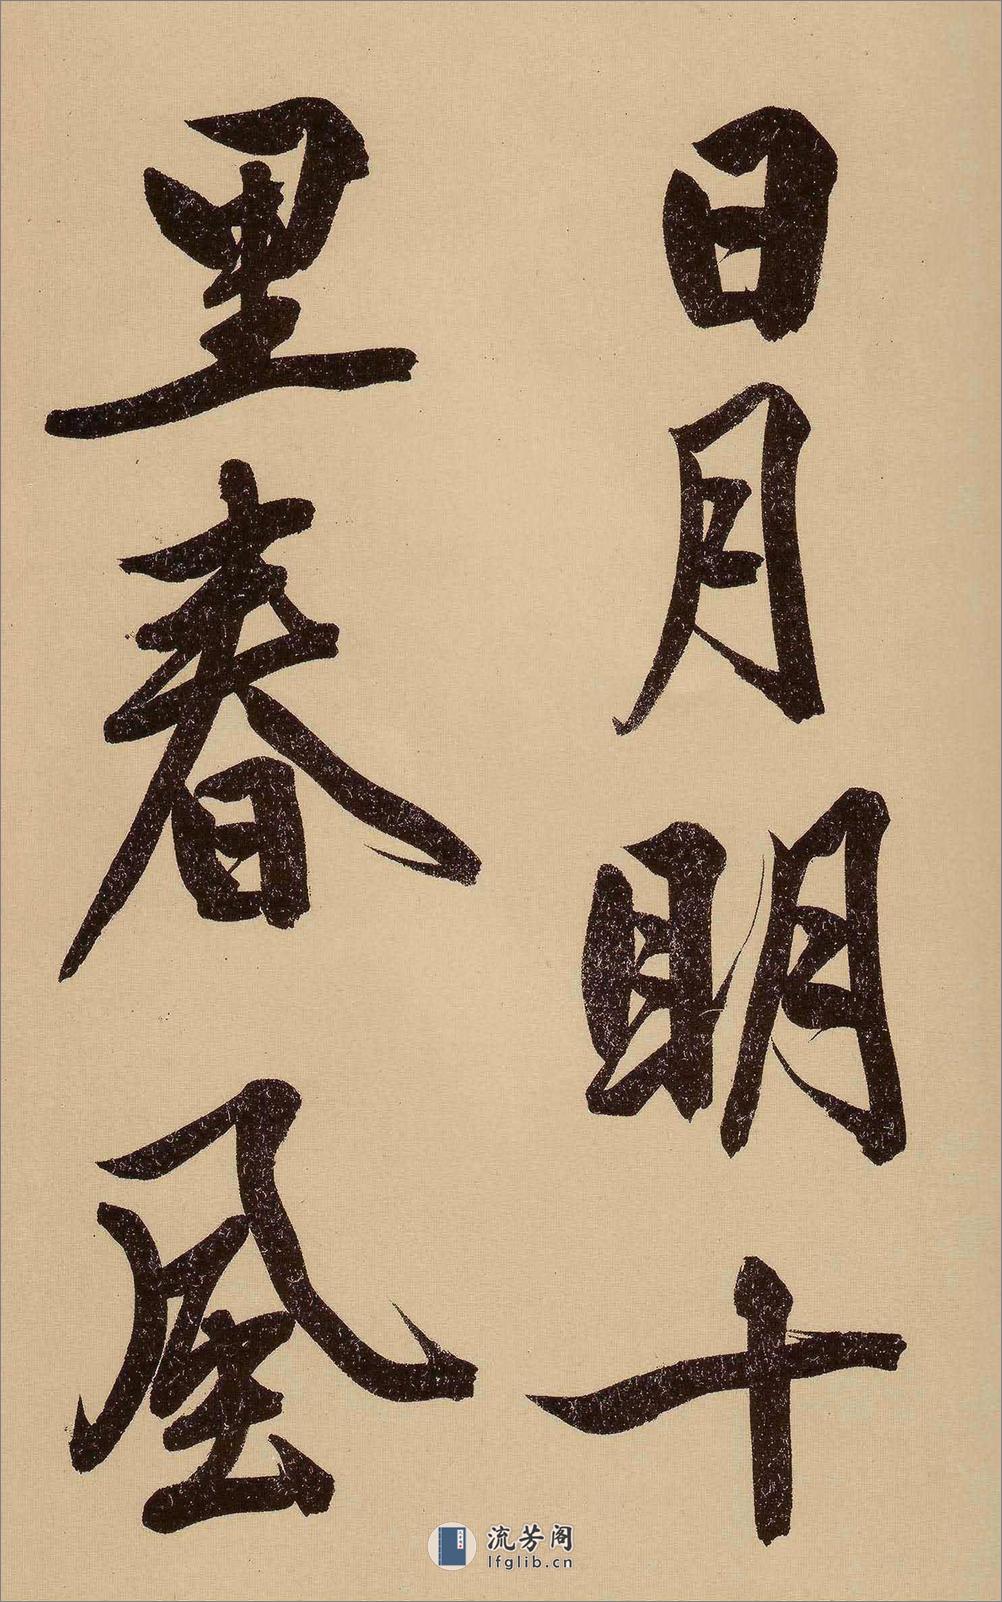 日月明十
里春風
流芳阁
lfglib.cn